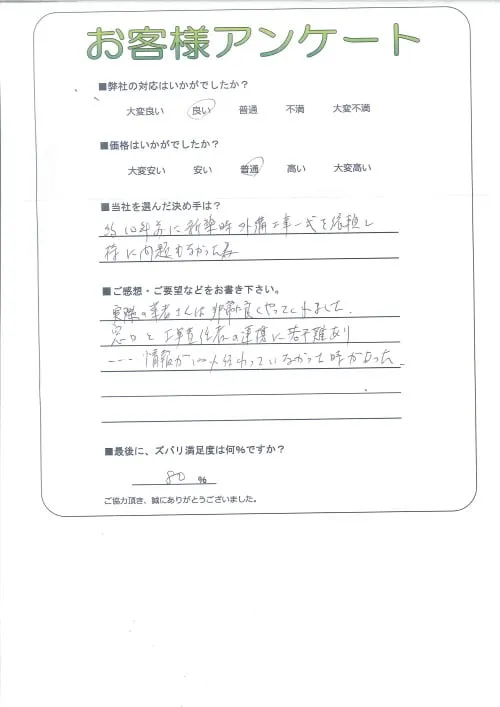 お客様アンケート
■弊社の対応はいかがでしたか？
大変良い 良い 普通 不満 大変不満
■価格はいかがでしたか？
大変安い 安い 普通 高い 大変高い
■当社を選んだ決め手は？
約10年前に新築時外構工事一式を依頼し
特に問題もなかった為
■ご感想・ご要望などをお書き下さい。
実際の業者さんは非常に良くやってくれました。
窓口と工事責任者の連携に若干難あり
---- 情報が100%伝わっていなかった時があった。
■最後に、ズバリ満足度は何％ですか？
80 %
ご協力頂き、誠にありがとうございました。